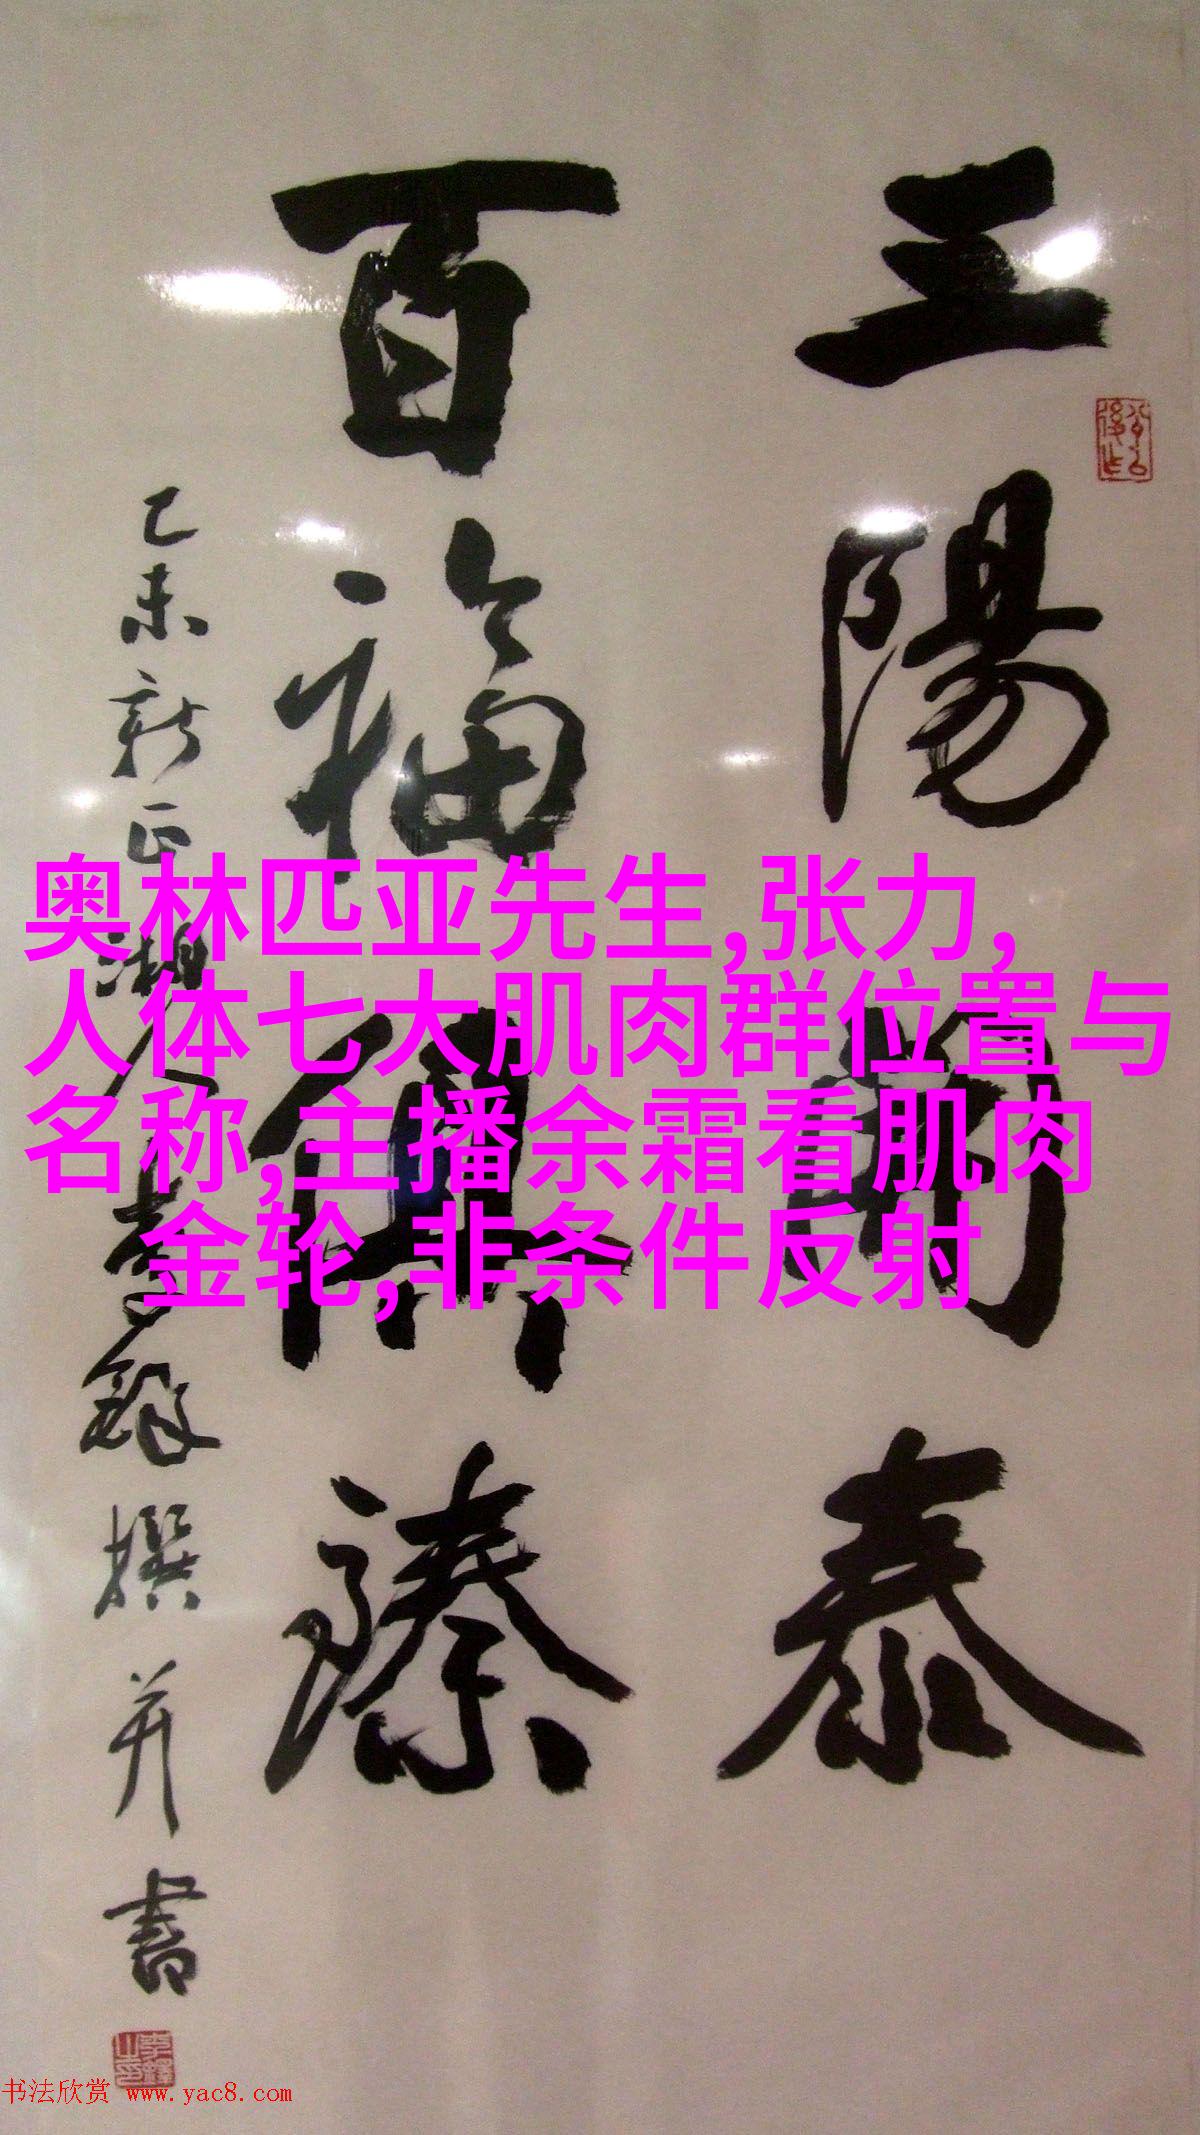 三陽開泰
百福俱臻
乙未新正湖人李鐸撰并書
奥林匹亚先生,张力,
人体七大肌肉群位置与
名称,主播余霜看肌肉
金轮,非条件反射
书法欣赏 www.yac8.com